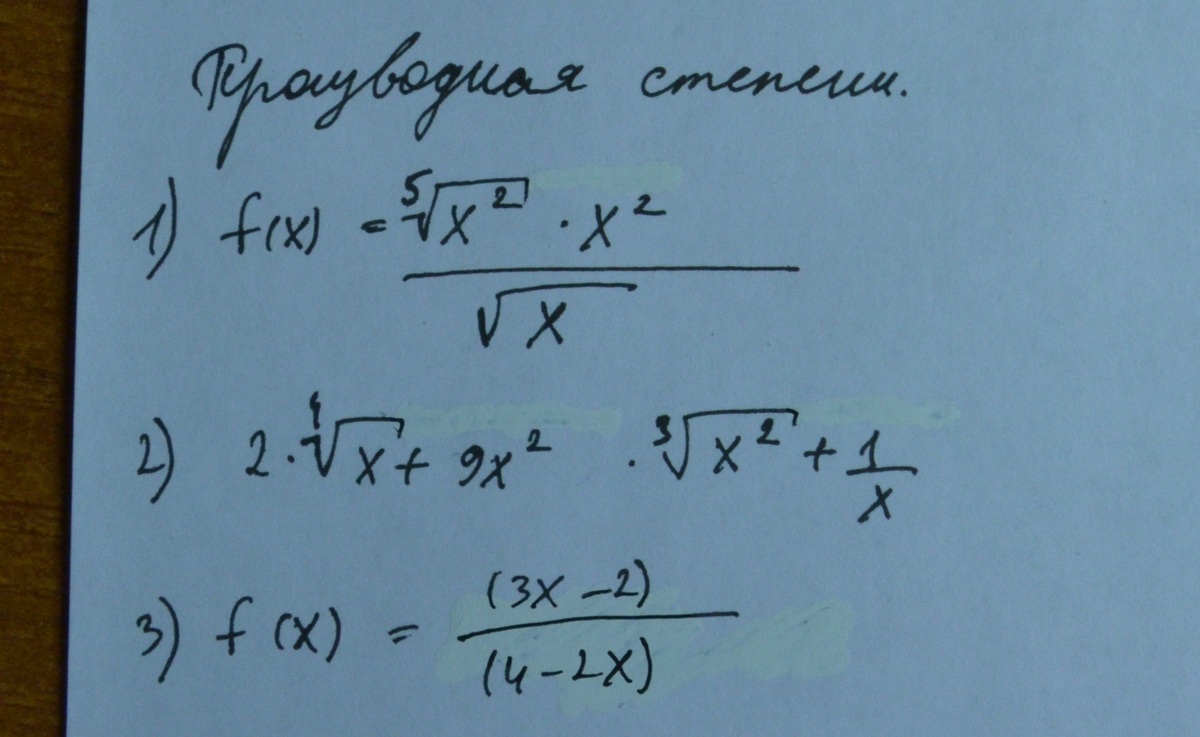 Производная степени.
1) f(x) = \frac{\sqrt[5]{x^2} \cdot x^2}{\sqrt{x}}
2) 2 \cdot \sqrt[4]{x} + 9x^2 \cdot \sqrt[3]{x^2} + \frac{1}{x}
3) f(x) = \frac{(3x-2)}{(4-2x)}